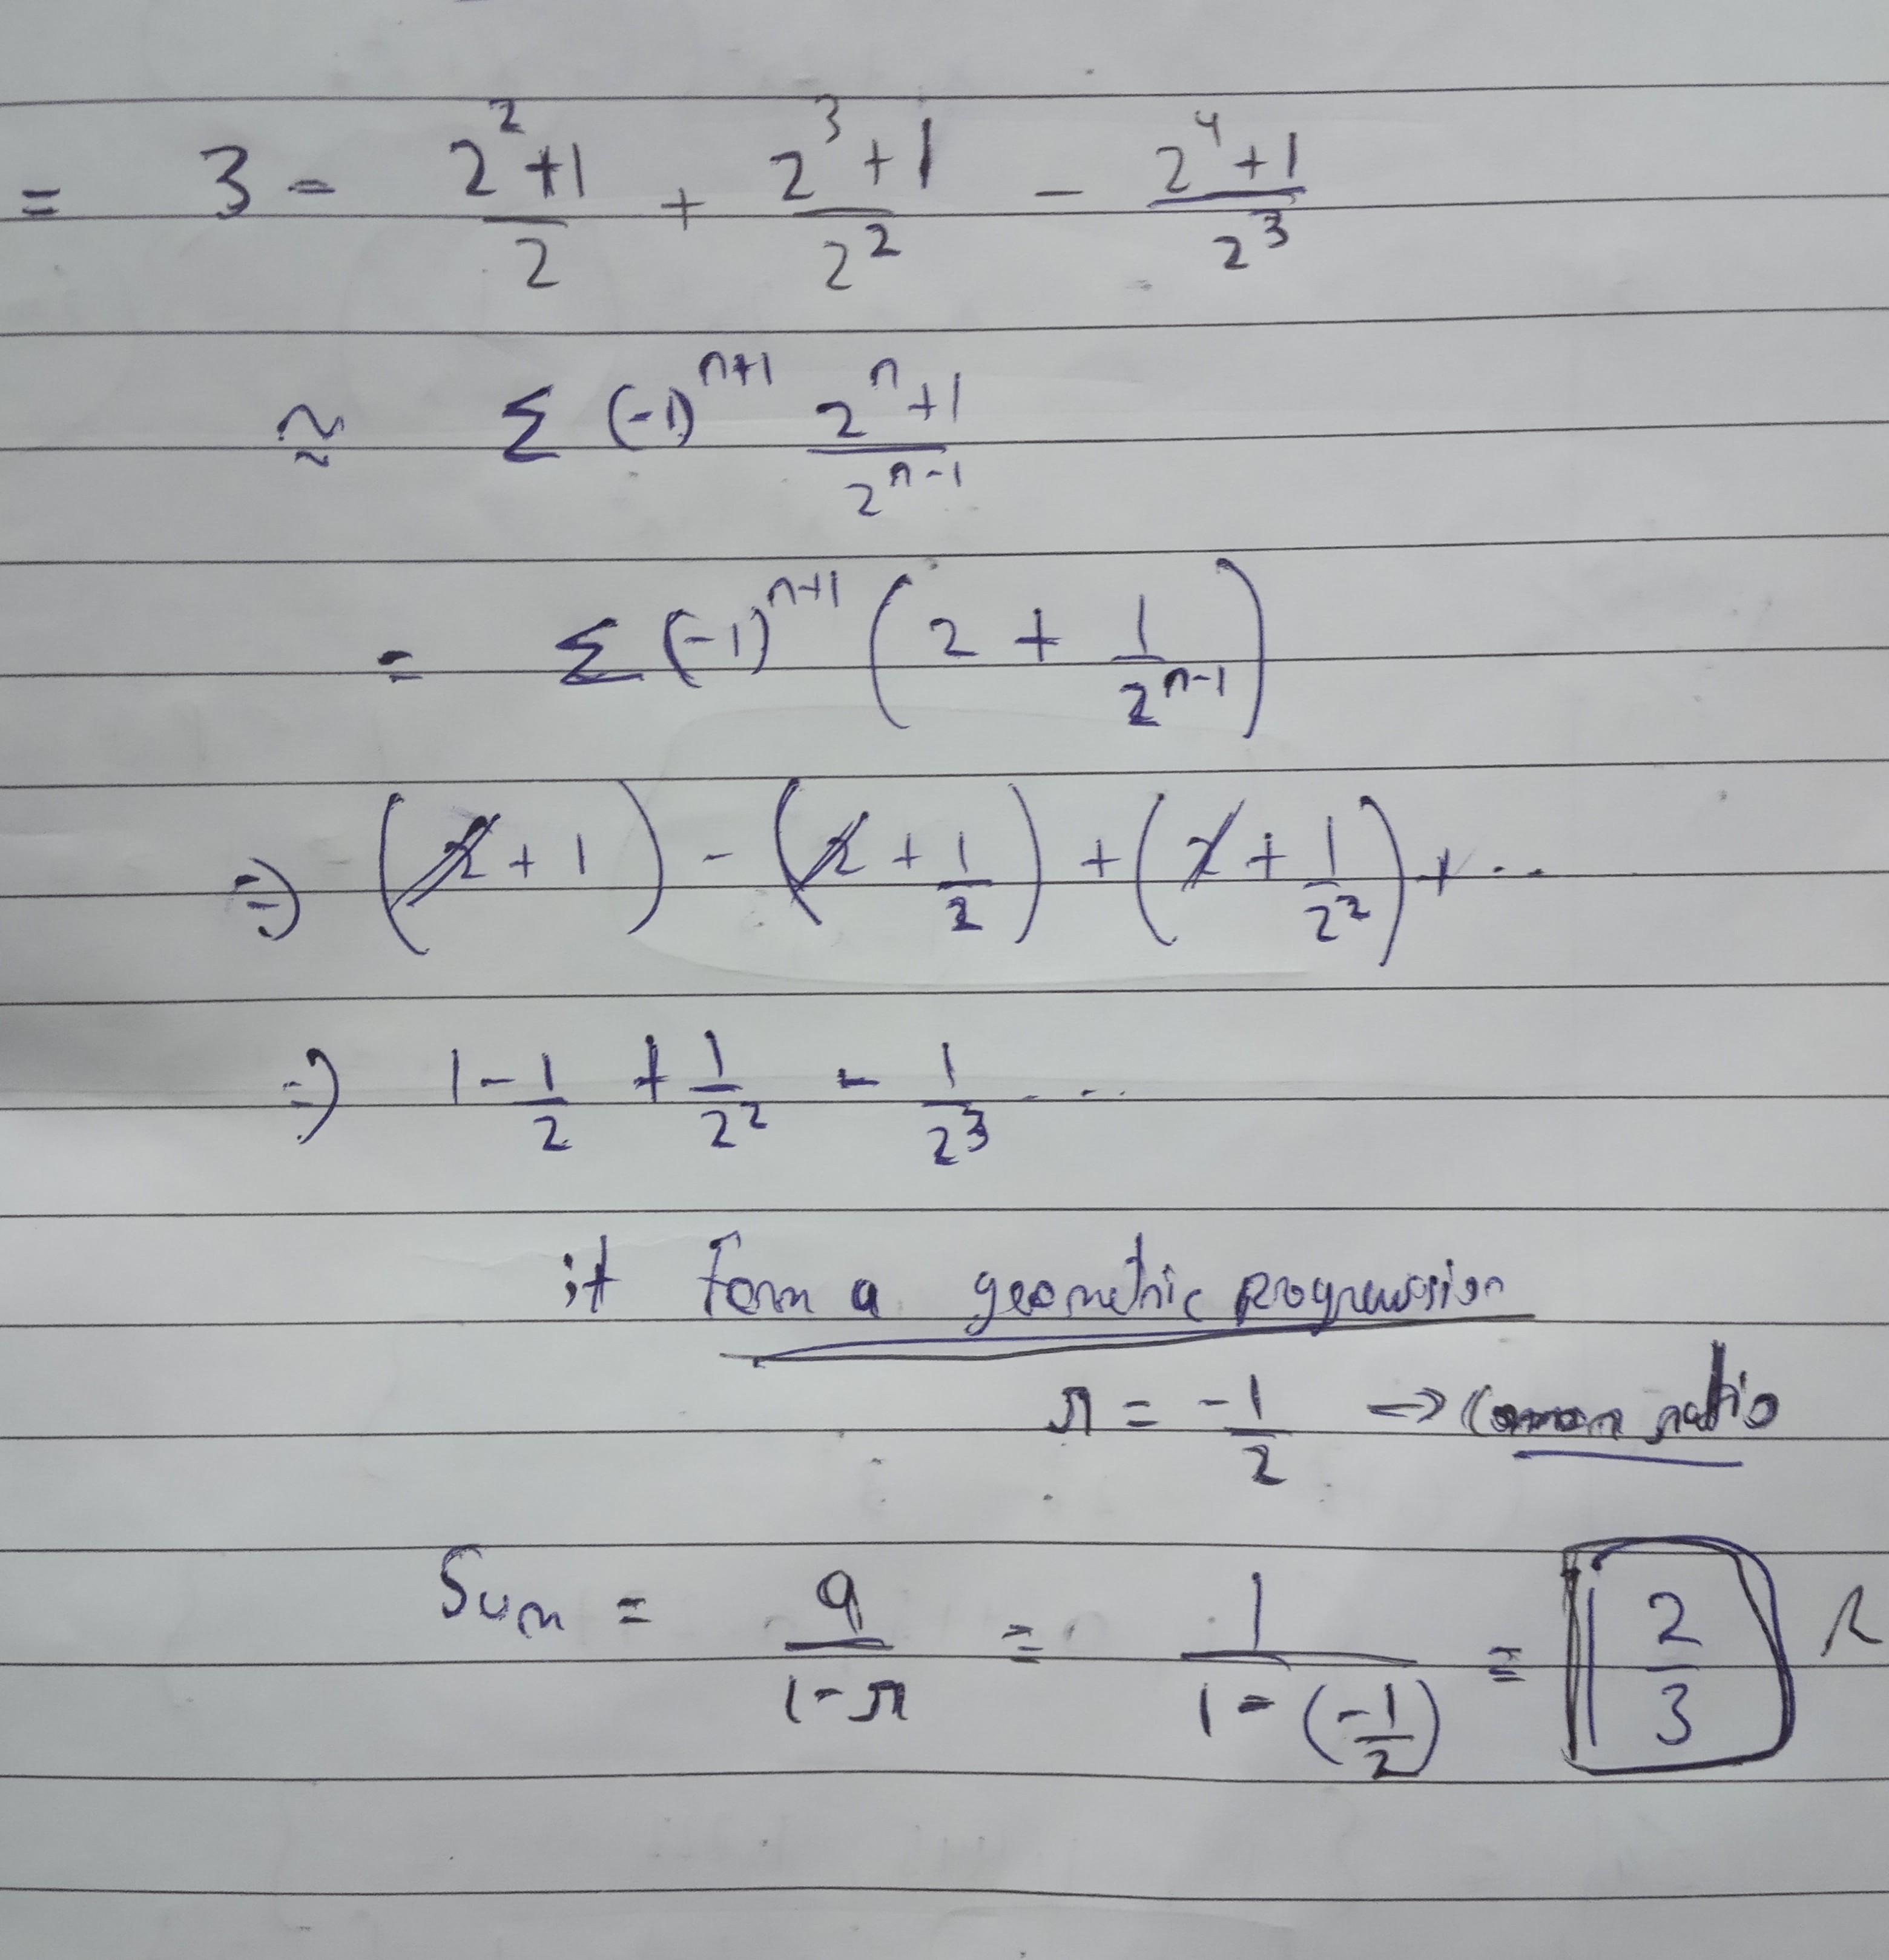 = 3 - (2^2+1)/2 + (2^3+1)/2^2 - (2^4+1)/2^3
≅ Σ (-1)^(n+1) (2^n+1)/2^(n-1)
= Σ (-1)^(n+1) (2 + 1/2^(n-1))
⇒ (2 + 1) - (2 + 1/2) + (2 + 1/2^2) + ...
⇒ 1 - 1/2 + 1/2^2 - 1/2^3 ...
it form a geometric progression
r = -1/2 → common ratio
Sum = a/(1-r) = 1/(1-(-1/2)) = 2/3